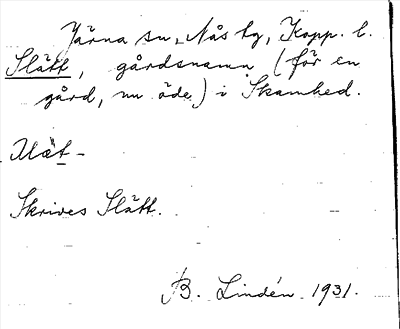 Järna sn, Nås tg, Kopp. l.
Slätt, gårdsnamn (för en
gård, nu öde) i Skamhed.
Skrives Slätt.
B. Lindén 1931.